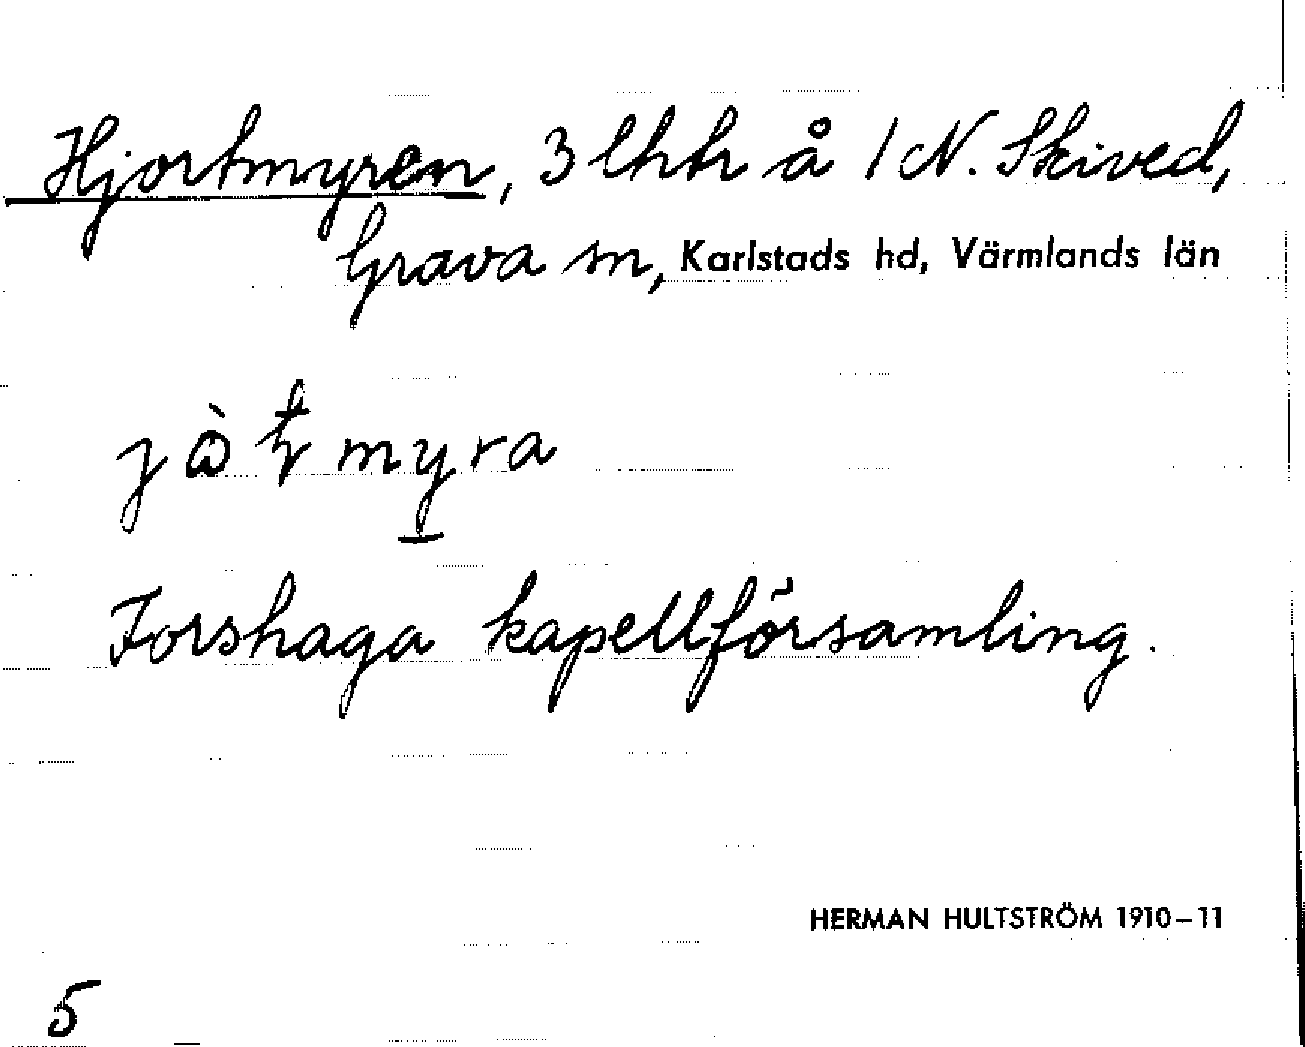 Hjortmyren, 3 lhtr å 1 N. Skived,
Grava sn, Karlstads hd, Värmlands län
Forshaga kapellförsamling.
HERMAN HULTSTRÖM 1910–11
5